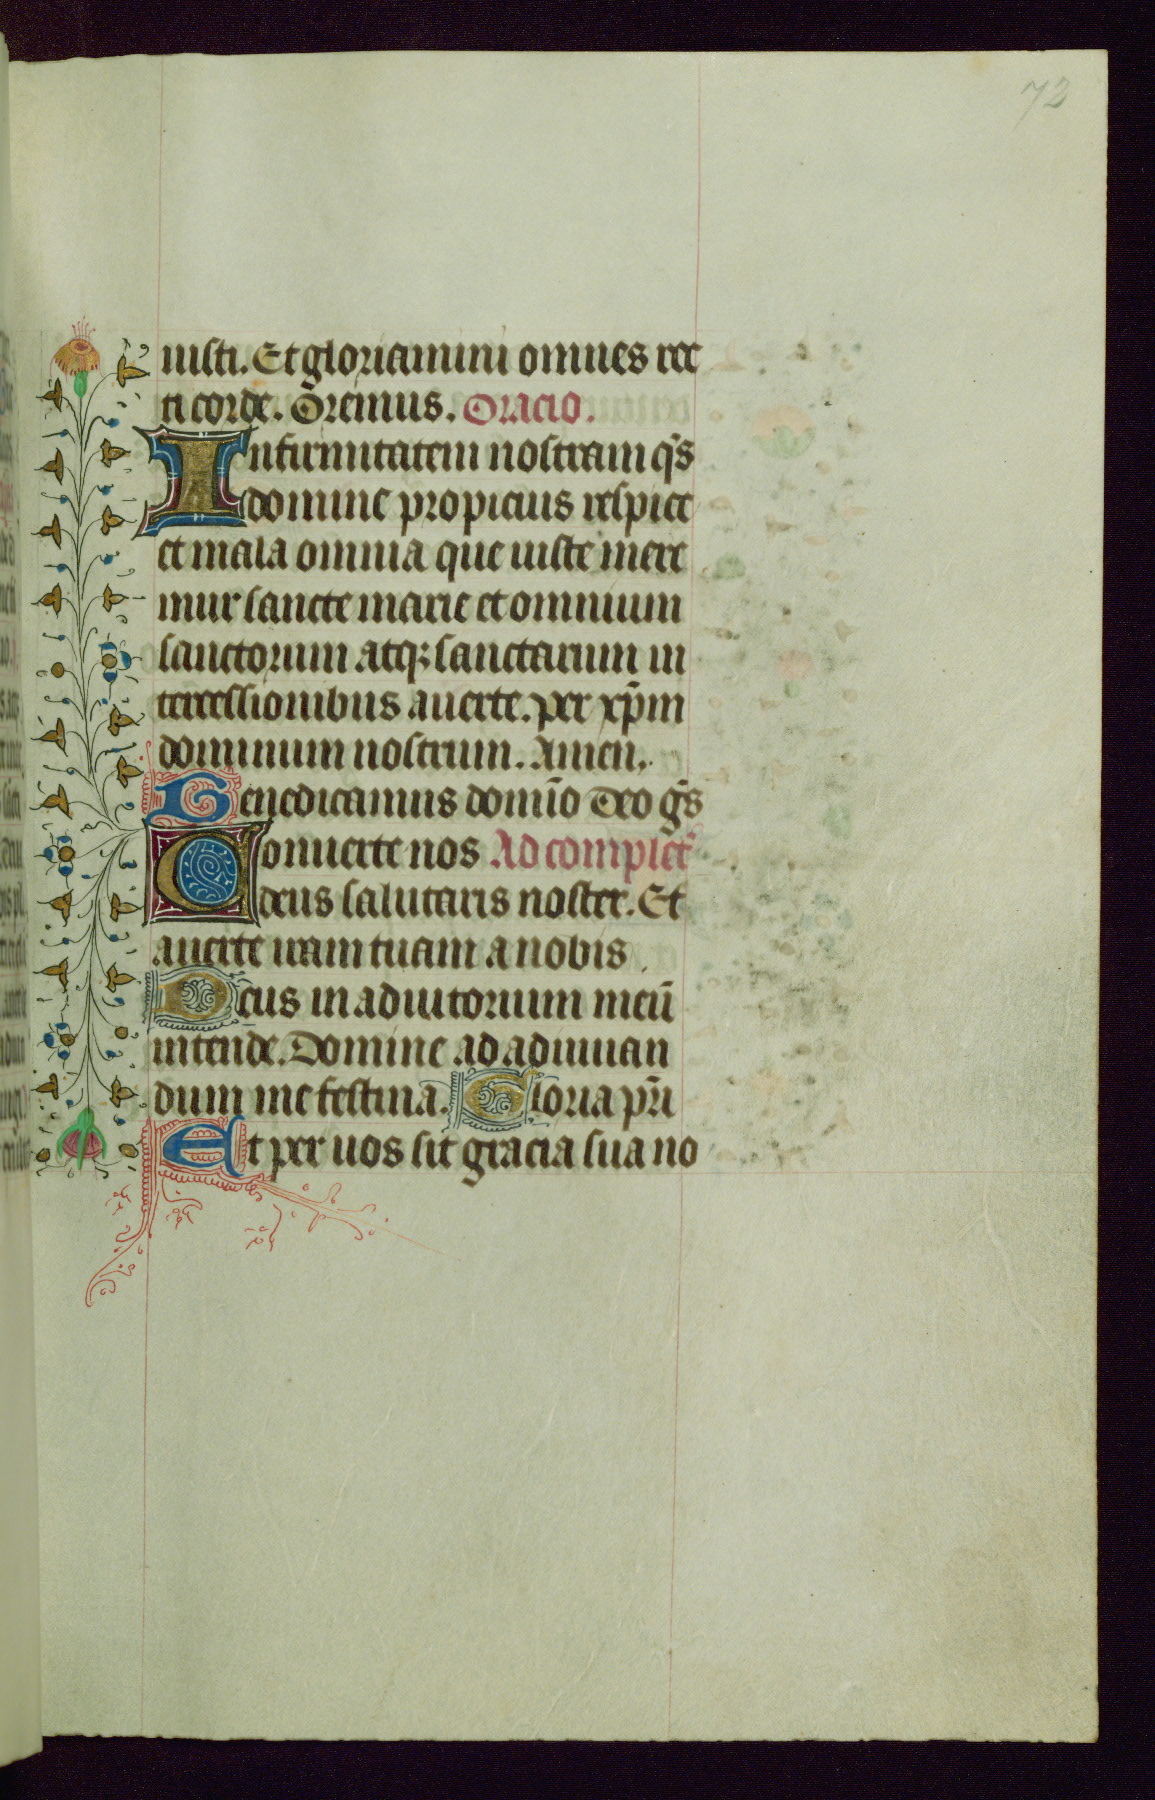 72
iusti. Et gloriamini omnes rec
ti corde. Oremus. Oracio.
Infirmitatem nostram q̄s
domine propicius respice
et mala omnia que iuste mere
mur sancte marie et omnium
sanctorum atq; sanctarum in
tercessionibus auerte. per xp̄m
dominum nostrum. Amen.
Benedicamus domīo Deo gr̄s
Conuerte nos Ad complet'
deus salutaris noster. Et
auerte iram tuam a nobis
Deus in adiutorium meū
intende. Domine ad adiuuan
dum me festina. Gloria pr̄i
Et per uos sit gracia sua no